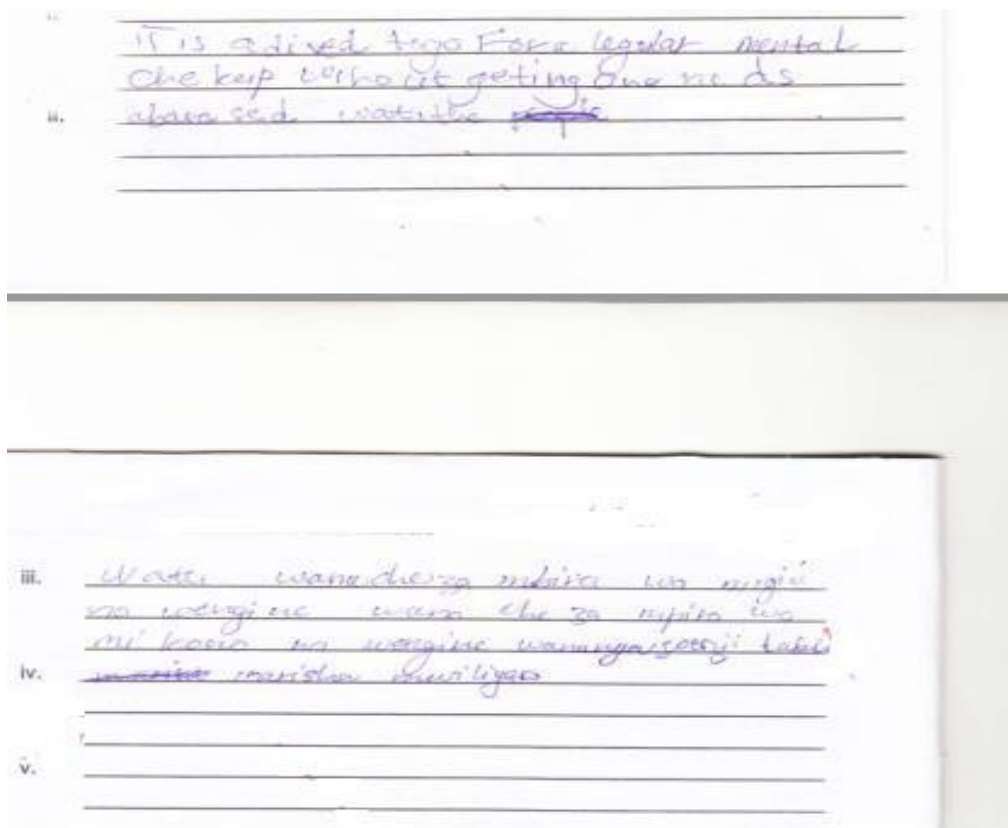 i.
IT is adived togo For a legular mental
Che kup Without geting One ne ds
ii.
iii. Watu wana cheza mpira wa migu
na wengine wana che za mpira wa
mi kono na wengine wananyosoviji
iv. marisha muiliyao
v.